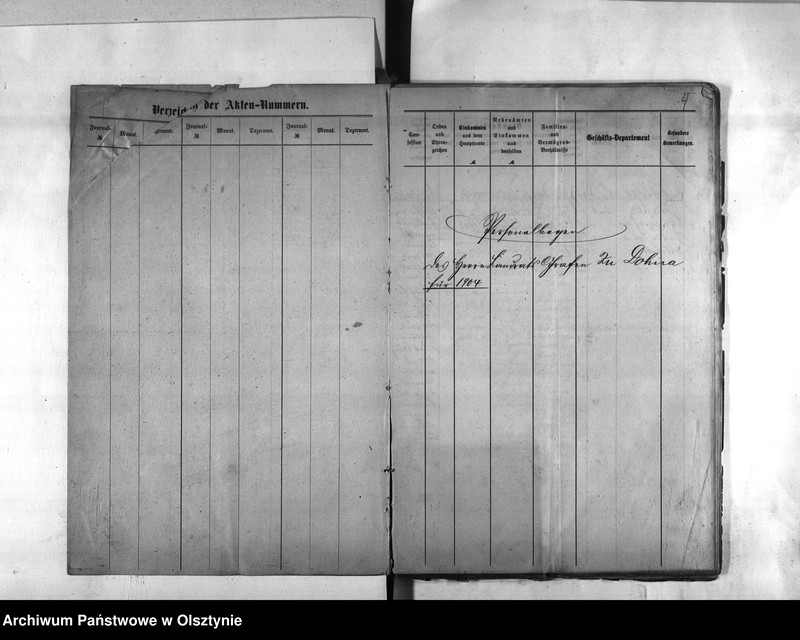 Verzeichnis der Akten-Nummern.
Journal- № Monat. Dezernent. Journal- № Monat. Dezernent. Journal- № Monat. Dezernent.
4
Con-
fession
Orden
und
Ehren-
zeichen
Einkommen
aus dem
Hauptamte
M
Nebenämter
und
Einkommen
aus
denselben
M
Familien-
und
Vermögens-
Verhältnisse
Geschäfts-Departement
Besondere
Bemerkungen.
Personalbogen
des Herrn Landrats Grafen zu Dohna
für 1904
Archiwum Państwowe w Olsztynie